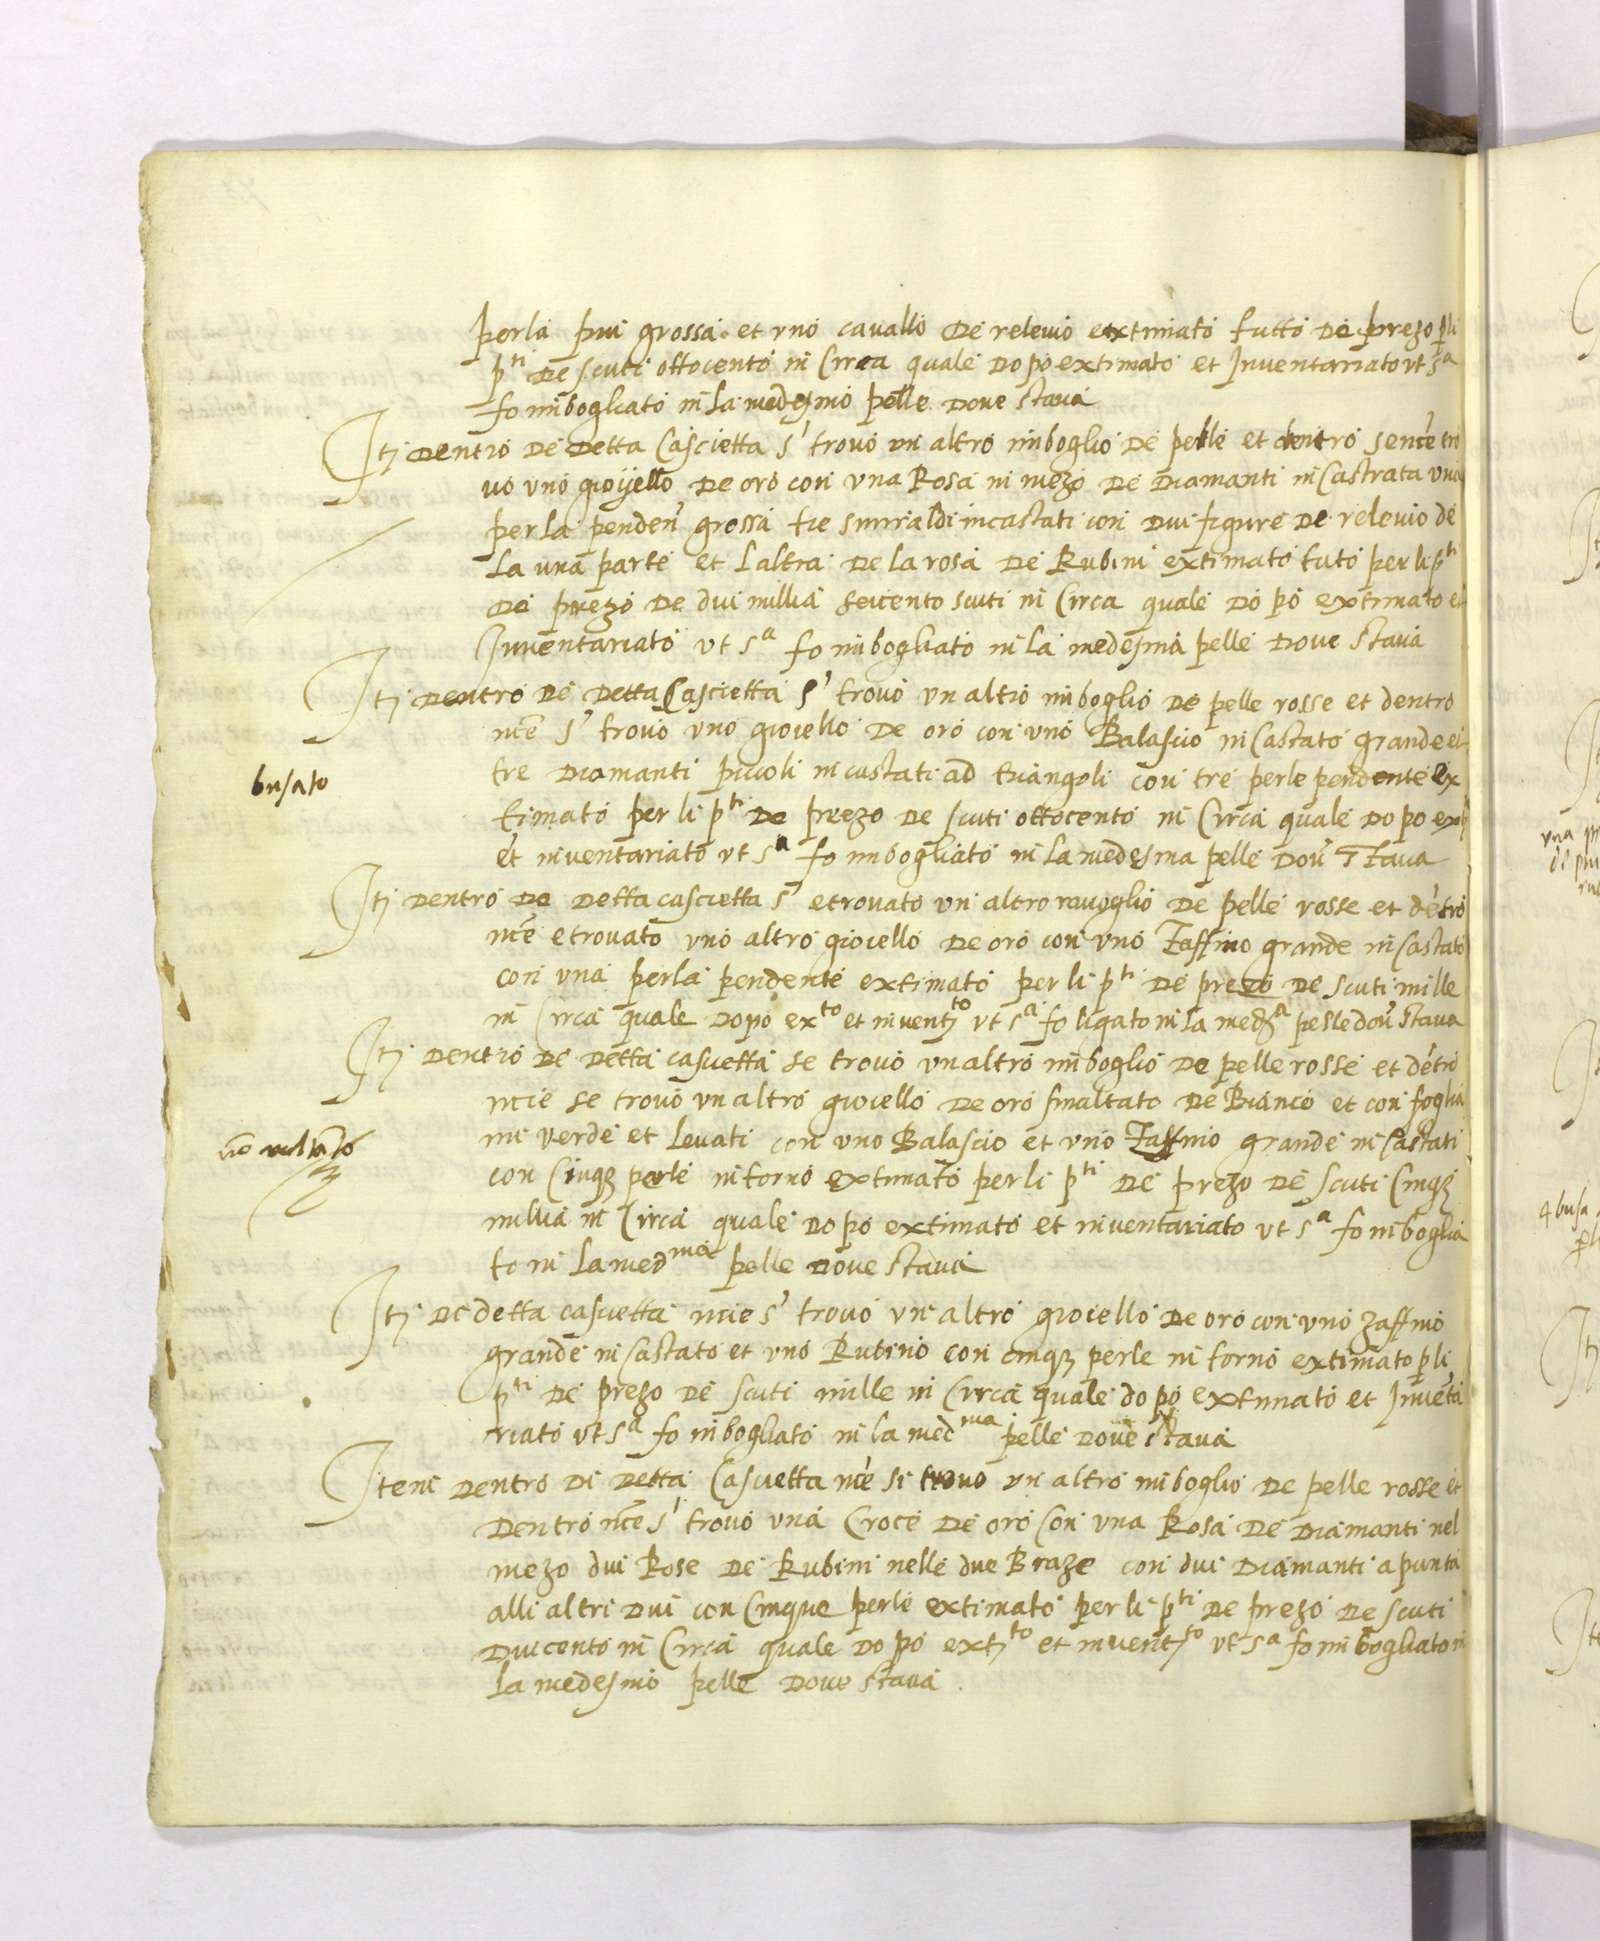 perla piu grossa et uno cavallo de relevio extimato tutto de prezo p li
p.ti de scuti ottocento in Circa quale dopo extimato et Inventariato ut s.a
fo imbogliato in la medesmo pelle dove stava
Itj dentro de detta Cascietta s' trovo un altro imboglio de pelle et dentro sence tro
vo uno gioijello de oro con una Rosa in mezo de diamanti in Castrata una
perla penden' grossa tre smiraldi incastati con dui figure de relevio de
la una parte et l altra de la rosa de Rubini extimato tuto per li p.ti
de prezo de dui millia seicento scuti in Circa quale dopo extimato et
Inventariato ut s.a fo imbogliato in la medesma pelle dove stava
Itj dentro de detta Cascietta s' trovo un altro imboglio de pelle rosse et dentro
nce s' trovo uno gioiello de oro con uno Balascio in Castato grande et
busato
tre diamanti piccoli in castati ad triangoli con tre perle pendente ex
timato per li p.ti de prezo de scuti ottocento in Circa quale dopo ex
et inventariato ut s.a fo imbogliato in la medesma pelle dov' stava
Itj dentro de detta cascietta s' etrovato un altro revoglio de pelle rosse et de'tro
nce etrovato uno altro gioiello de oro con uno Zaffino grande in Castato
con una perla pendente extimato per li p.ti de prezo de scuti mille
in Circa quale dopo ex.to et inventj.to ut s.a fo ligato in la meds.a pelle dov' stava
Itj dentro de detta cascietta se trovo un altro imboglio de pelle rosse et de'tro
ncie se trovo un altro gioiello de oro smaltato de Bianco et con foglia
mi verde et levati con uno Balascio et uno Zaffino grande in Castati
no
con Cinq3 perle intorno extimato per li p.ti de prezo de scuti Cinq3
millia in Circa quale dopo extimato et inventariato ut s.a fo imboglia
to in la med.ma pelle dove stava
Itj de detta cascietta ncie s' trovo un altro gioiello de oro con uno zaffino
grande in Castato et uno Rubino con cinq3 perle in torno extimato p li
p.ti de prezo de scuti mille in Circa quale dopo extimato et Inve'ta
riato ut s.a fo imbogliato in la med.ma pelle dove stava
Item dentro di detta Cascietta nce si trovo un altro imboglio de pelle rosse et
dentro nce s' trovo una Croce de oro Con una Rosa de diamanti nel
mezo dui Rose de Rubini nelle due Braze con dui diamanti a punta
alli altri dui con Cinque perle extimato per li p.ti de prezo de scuti
duicento in Circa quale dopo extj.to et inventj.to ut s.a fo imbogliato in
la medesmo pelle dove stava